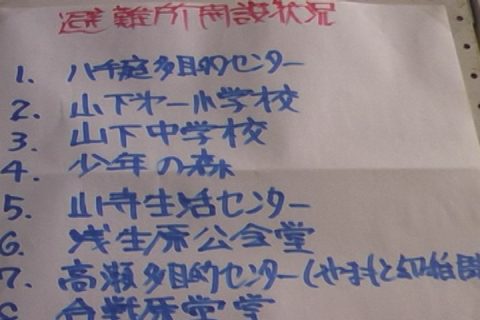 避難所開設状況
1. 八千庭多目的センター
2. 山下第一小学校
3. 山下中学校
4. 少年の森
5. 山寺生活センター
6. 浅生原公会堂
7. 高瀬多目的センター(やまもと幼稚園
8 合戦原堂学